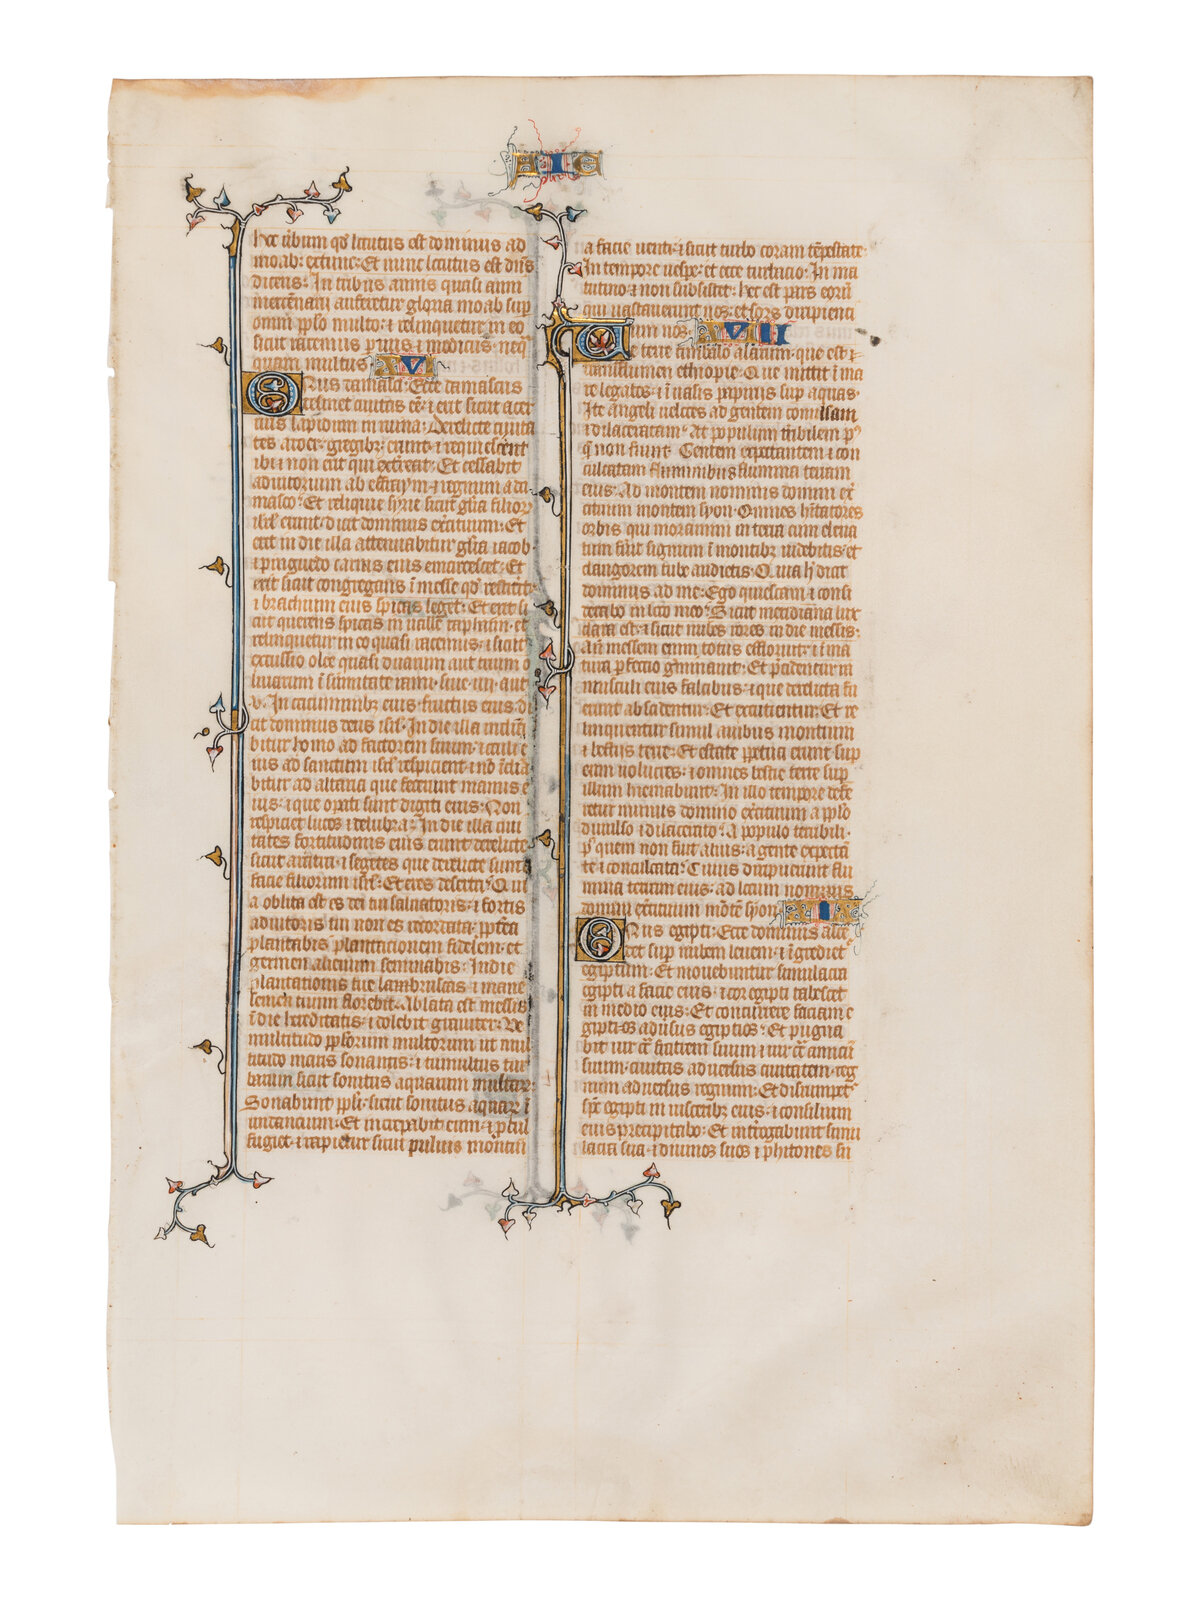 hoc ũbum qd̃ locutus est dominus ad
moab: ex tunc· Et nunc locutus est dñs
dicens· In tribus annis quasi anni
mercennarii auferetur gloria moab sup̱
omni pp̃lo multo· ⁊ relinquetur in eo
sicut racemus ꝑuus ⁊ modicus· neq̃
quam multus V
Onus damasci· Ecce damascus
desinet ciuitas eē· ⁊ erit sicut acer
uus lapidum in ruina· Derelicte ciuita
tes aroer· gregibꝫ erunt· ⁊ requiescent
ibi ⁊ non erit qui exterreat· Et cessabit
adiutorium ab effraym· ⁊ regnum a da
masco· Et reliquie syrie sicut gl̃ia filioꝝ
isr̃l erunt dicit dominus ex̃cituum· Et
erit in die illa attenuabitur gl̃ia iacob
⁊ pinguedo carnis eius emarcescet· Et
erit sicut congregans ĩ messe qd̃ restitit·
⁊ brachium eius spicas leget· Et erit si
cut querens spicas in ualle raphaim· et
relinquetur in eo quasi racemus· ⁊ sicut
excussio olee quasi duarum aut trium o
liuarum ĩ summitate rami· siue ·iiii· aut
·v· In cacuminibꝫ eius fructus eius di
cit dominus deus isr̃l· In die illa inclina
bitur homo ad factorem suum· ⁊ oculi e
ius ad sanctum isr̃l respicient· ⁊ nõ ĩclĩa
bitur ad altaria que fecerunt manus e
ius· ⁊ que oꝑati sunt digiti eius· Non
respiciet lucos ⁊ delubra· In die illa ciui
tates fortitudinis eius erunt derelicte
sicut aratra· ⁊ segetes que derelicte sunt a
facie filiorum isr̃l· Et eris deserta· Qui
a oblita est es dei tui saluatoris· ⁊ fortis
adiutoris tui non es recordata· ꝓpt̃ea
plantabis plantationem fidelem· et
germen alienum seminabis· In die
plantationis tue lambruscas· ⁊ mane
semen tuum florebit· Ablata est messis
ĩ die hereditatis· ⁊ dolebit grauiter· Ve
multitudo pp̃lorum multorum ut mul
titudo maris sonantis· ⁊ tumultus tur
barum sicut sonitus aquarum multaꝝ·
Sonabunt pp̃li· sicut sonitus aquaꝝ ĩ
undancium· Et increpabit eum· ⁊ ꝓcul
fugiet· ⁊ rapietur sicut puluis montiũ
a facie uenti· ⁊ sicut turbo coram tẽpestate·
In tempore uesꝑe· et ecce turbacio· In ma
tutino ⁊ non subsistet· hec est pars eorũ
qui uastauerunt nos· et sors diripienti
um nos· VII
Ve terre cimbalo alarum· que est t
transflumen ethiopie· Que mittit ĩ ma
re legatos· ⁊ ĩ uasis papiriis sup̱ aquas·
Ite angeli ueloces ad gentem conuulsam
⁊ dilaceratam· At populum tr̃ribilem pꝰ
q̃ non fuit· Gentem expectantem ⁊ con
culcatam fluminibus flumina terram
eius· Ad montem nominis domini ex̃
cituum montem syon· Omnes habitatores
orbis qui moramini in terra cum eleua
tum fũit signum ĩ montibꝫ uidebitis· et
clangorem tube audietis· Quia h̃ dicit
dominus ad me· Ego quiescam ⁊ consi
derabo in loco meo· Sicut meridiana lux
clara est· ⁊ sicut nubes roris in die messis·
Añ messem enim totus effloruit· ⁊ ima
tura ꝑfectio gĩminauit· Et p̃cidentur ra
musculi eius falcibus· ⁊ que derelicta fu
erunt abscidentur· Et excutientur· Et re
linquentur simul auibus montium
⁊ bestiis terre· Et estate ꝑpetua erunt sup̱
eum uolucres· ⁊ omnes bestie terre sup̱
illum hiemabunt· In illo tempore defe
retur munus domino ex̃cituum a pp̃lo
diuulso ⁊ dilacerato· A populo terribili·
pꝰ quem non fuit alius· a gente expectã
te ⁊ conculcata· Cuius diripuerunt flu
mina terram eius· ad locum nominis
domini ex̃cituum mõtẽ syon· I
Onus egipti· Ecce dominus asce
det sup̱ nubem leuem· ⁊ ĩgrediet̃
egiptum· Et mouebuntur simulacra
egipti a facie eius· ⁊ cor egipti tabescet
in medio eius· Et concurrere faciam e
giptios adũsus egiptios· Et pugna
bit uir cõtra fratrem suum ⁊ uir cõtra amicũ
suum· ciuitas aduersus ciuitatem· reg
num aduersus regnum· Et disrumpet̃
sp̃c egipti in uisceribꝫ eius· ⁊ consilium
eius precipitabo· Et introgabunt simu
lacra sua· ⁊ diuinos suos ⁊ phitones su